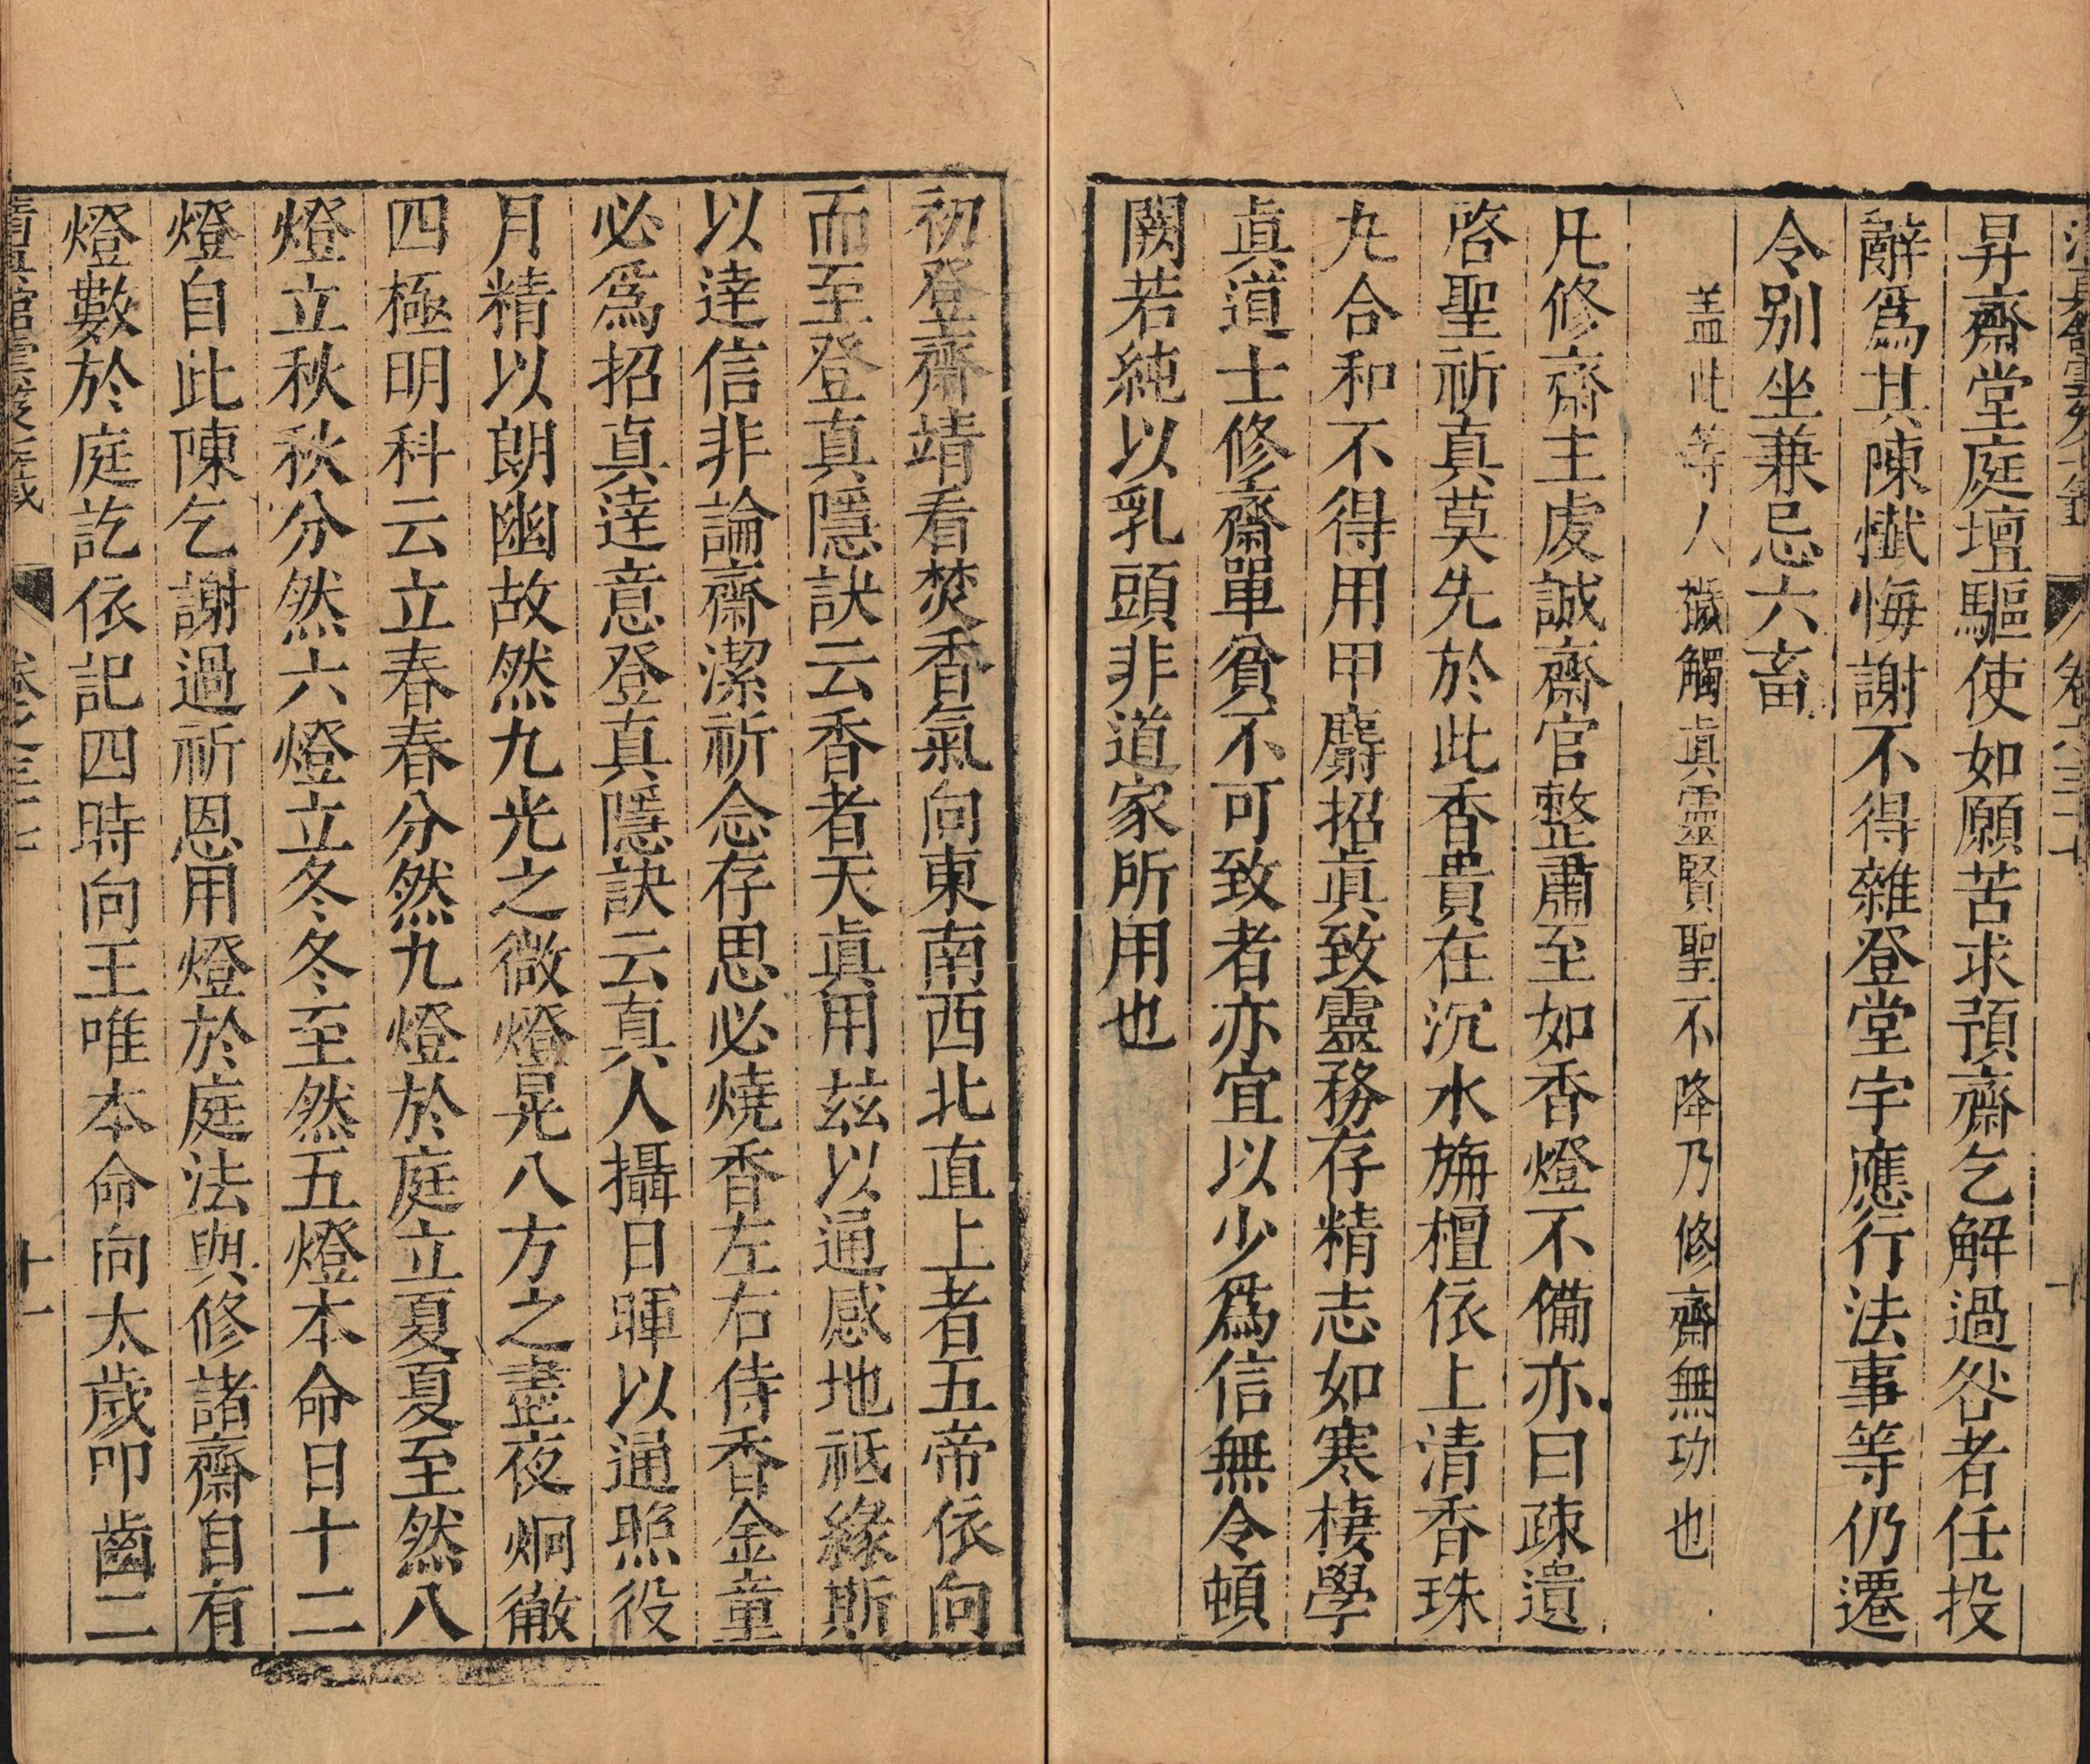 昇齋堂庭壇驅使如願苦求預齋乞解過咎者任投
辭爲其陳懴悔謝不得雜登堂宇應行法事等仍遷
令别坐兼忌六畜
蓋此等人穢觸眞靈賢聖不降乃修齋無功也
凡修齋主虔誠齋官整肅至如香燈不備亦曰疎遺
啓聖祈真莫先於此香貴在沉水旃檀依上清香珠
九合和不得用甲麝招眞致靈務存精志如寒棲學
眞道士修齋單貧不可致者亦宜以少爲信無令頓
闕若純以乳頭非道家所用也
初登齋靖看焚香氣向東南西北直上者五帝依向
而至登真隱訣云香者天眞用兹以通感地祇緣斯
以達信非論齋潔祈念存思必燒香左右侍香金童
必爲招真達意登真隱訣云真人攝日暉以通照役
月精以朗幽故然九光之微燈晃八方之盡夜烱徹
四極明科云立春春分然九燈於庭立夏夏至然八
燈立秋秋分然六燈立冬冬至然五燈本命日十二
燈自此陳乞謝過祈恩用燈於庭法與修諸齋自有
燈數於庭訖依記四時向王唯本命向太歲叩齒二
清真館雲笈七籤 卷之三十七 十一